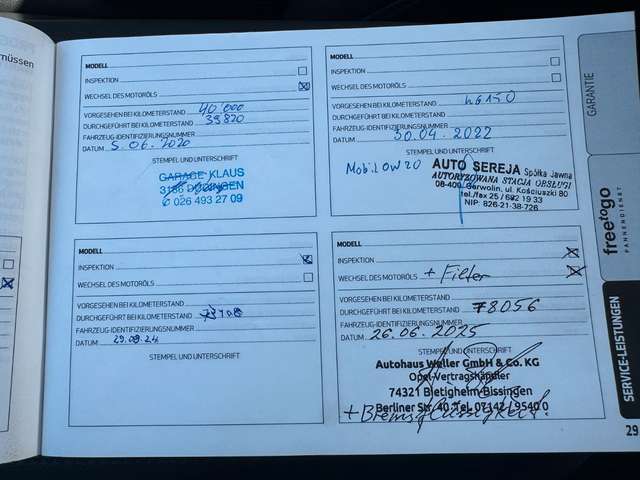 müssen
MODELL
INSPEKTION
WECHSEL DES MOTORÖLS
VORGESEHEN BEI KILOMETERSTAND 40'000
DURCHGEFÜHRT BEI KILOMETERSTAND 39820
FAHRZEUG-IDENTIFIZIERUNGSNUMMER
DATUM 5.06.2020
STEMPEL UND UNTERSCHRIFT
GARAGE KLAUS
3186 DÜDINGEN
026 493 27 09
MODELL
INSPEKTION
WECHSEL DES MOTORÖLS
VORGESEHEN BEI KILOMETERSTAND
DURCHGEFÜHRT BEI KILOMETERSTAND
FAHRZEUG-IDENTIFIZIERUNGSNUMMER
DATUM 30.04.2022
STEMPEL UND UNTERSCHRIFT
AUTO SEREJA Spółka Jawna
AUTORYZOWANA STACJA OBSŁUGI
08-400 Garwolin, ul. Kościuszki 80
tel./fax 25 / 682 19 33
NIP: 826-21-38-726
MODELL
INSPEKTION
WECHSEL DES MOTORÖLS
VORGESEHEN BEI KILOMETERSTAND
DURCHGEFÜHRT BEI KILOMETERSTAND
FAHRZEUG-IDENTIFIZIERUNGSNUMMER
DATUM 29.08.24
STEMPEL UND UNTERSCHRIFT
MODELL
INSPEKTION
WECHSEL DES MOTORÖLS + Filter
VORGESEHEN BEI KILOMETERSTAND
DURCHGEFÜHRT BEI KILOMETERSTAND 78056
FAHRZEUG-IDENTIFIZIERUNGSNUMMER
DATUM 26.06.2025
STEMPEL UND UNTERSCHRIFT
Autohaus Weller GmbH & Co. KG
Opel-Vertragshändler
74321 Bietigheim-Bissingen
Berliner Str. 40 Tel. 07142 / 9540 0
+ Bremsflüssigkeit.
GARANTIE
freetogo
PANNENDIENST
SERVICE-LEISTUNGEN
29